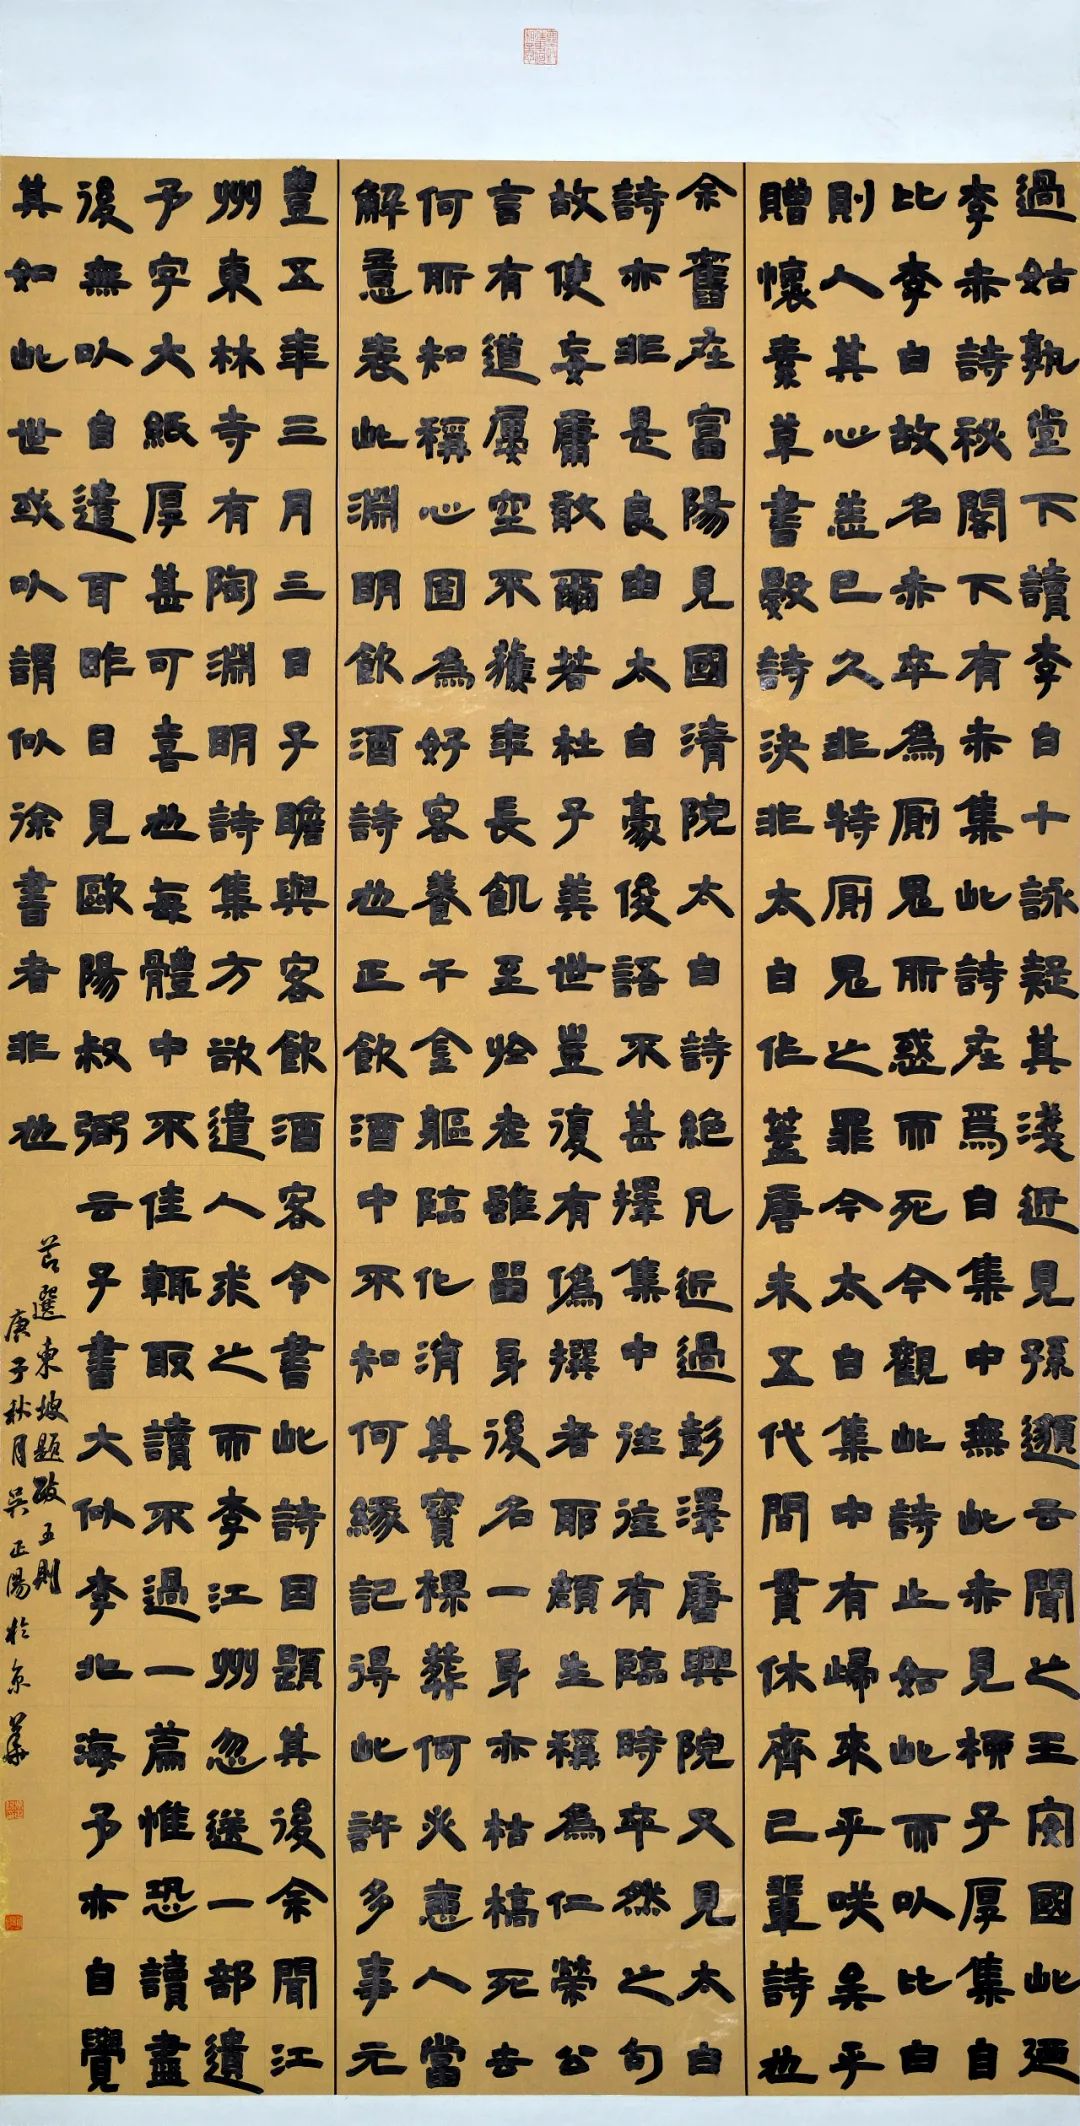 過姑孰堂下讀李白十詠疑其淺近見孫邈云聞之王安國此廼
李赤詩秘閣下有赤集此詩在焉白集中無此赤見柳子厚集自
比李白故名赤卒為厠鬼所惑而死今觀此詩止如此而以比白
則人其心恙已久非特厠鬼之罪今太白集中有歸來乎咲矣乎
贈懷素草書數詩決非太白作蓋唐末五代間貫休齊己輩詩也
余舊在富陽見國清院太白詩絕凡近過彭澤唐興院又見太白
詩亦非是良由太白豪俊語不甚擇集中往往有臨時卒然之句
故使妄庸敢爾若杜子美世豈復有偽撰者耶顏生稱為仁榮公
言有道屢空不獲年長飢至於老雖留身後名一身亦枯槁死去
何所知稱心固為好客養千金軀臨化消其寶裸葬何必惡人當
解意表此淵明飲酒詩也正飲酒中不知何緣記得此許多事元
豐五年三月三日子瞻與客飲酒客令書此詩因題其後余聞江
州東林寺有陶淵明詩集方欲遣人求之而李江州忽送一部遺
予字大紙厚甚可喜也每體中不佳輒取讀不過一篇惟恐讀盡
後無以自遣耳昨日見歐陽叔弼云子書大似李北海予亦自覺
其如此世或以謂似徐書者非也
節選東坡題跋五則
庚子秋月吳正陽於京華